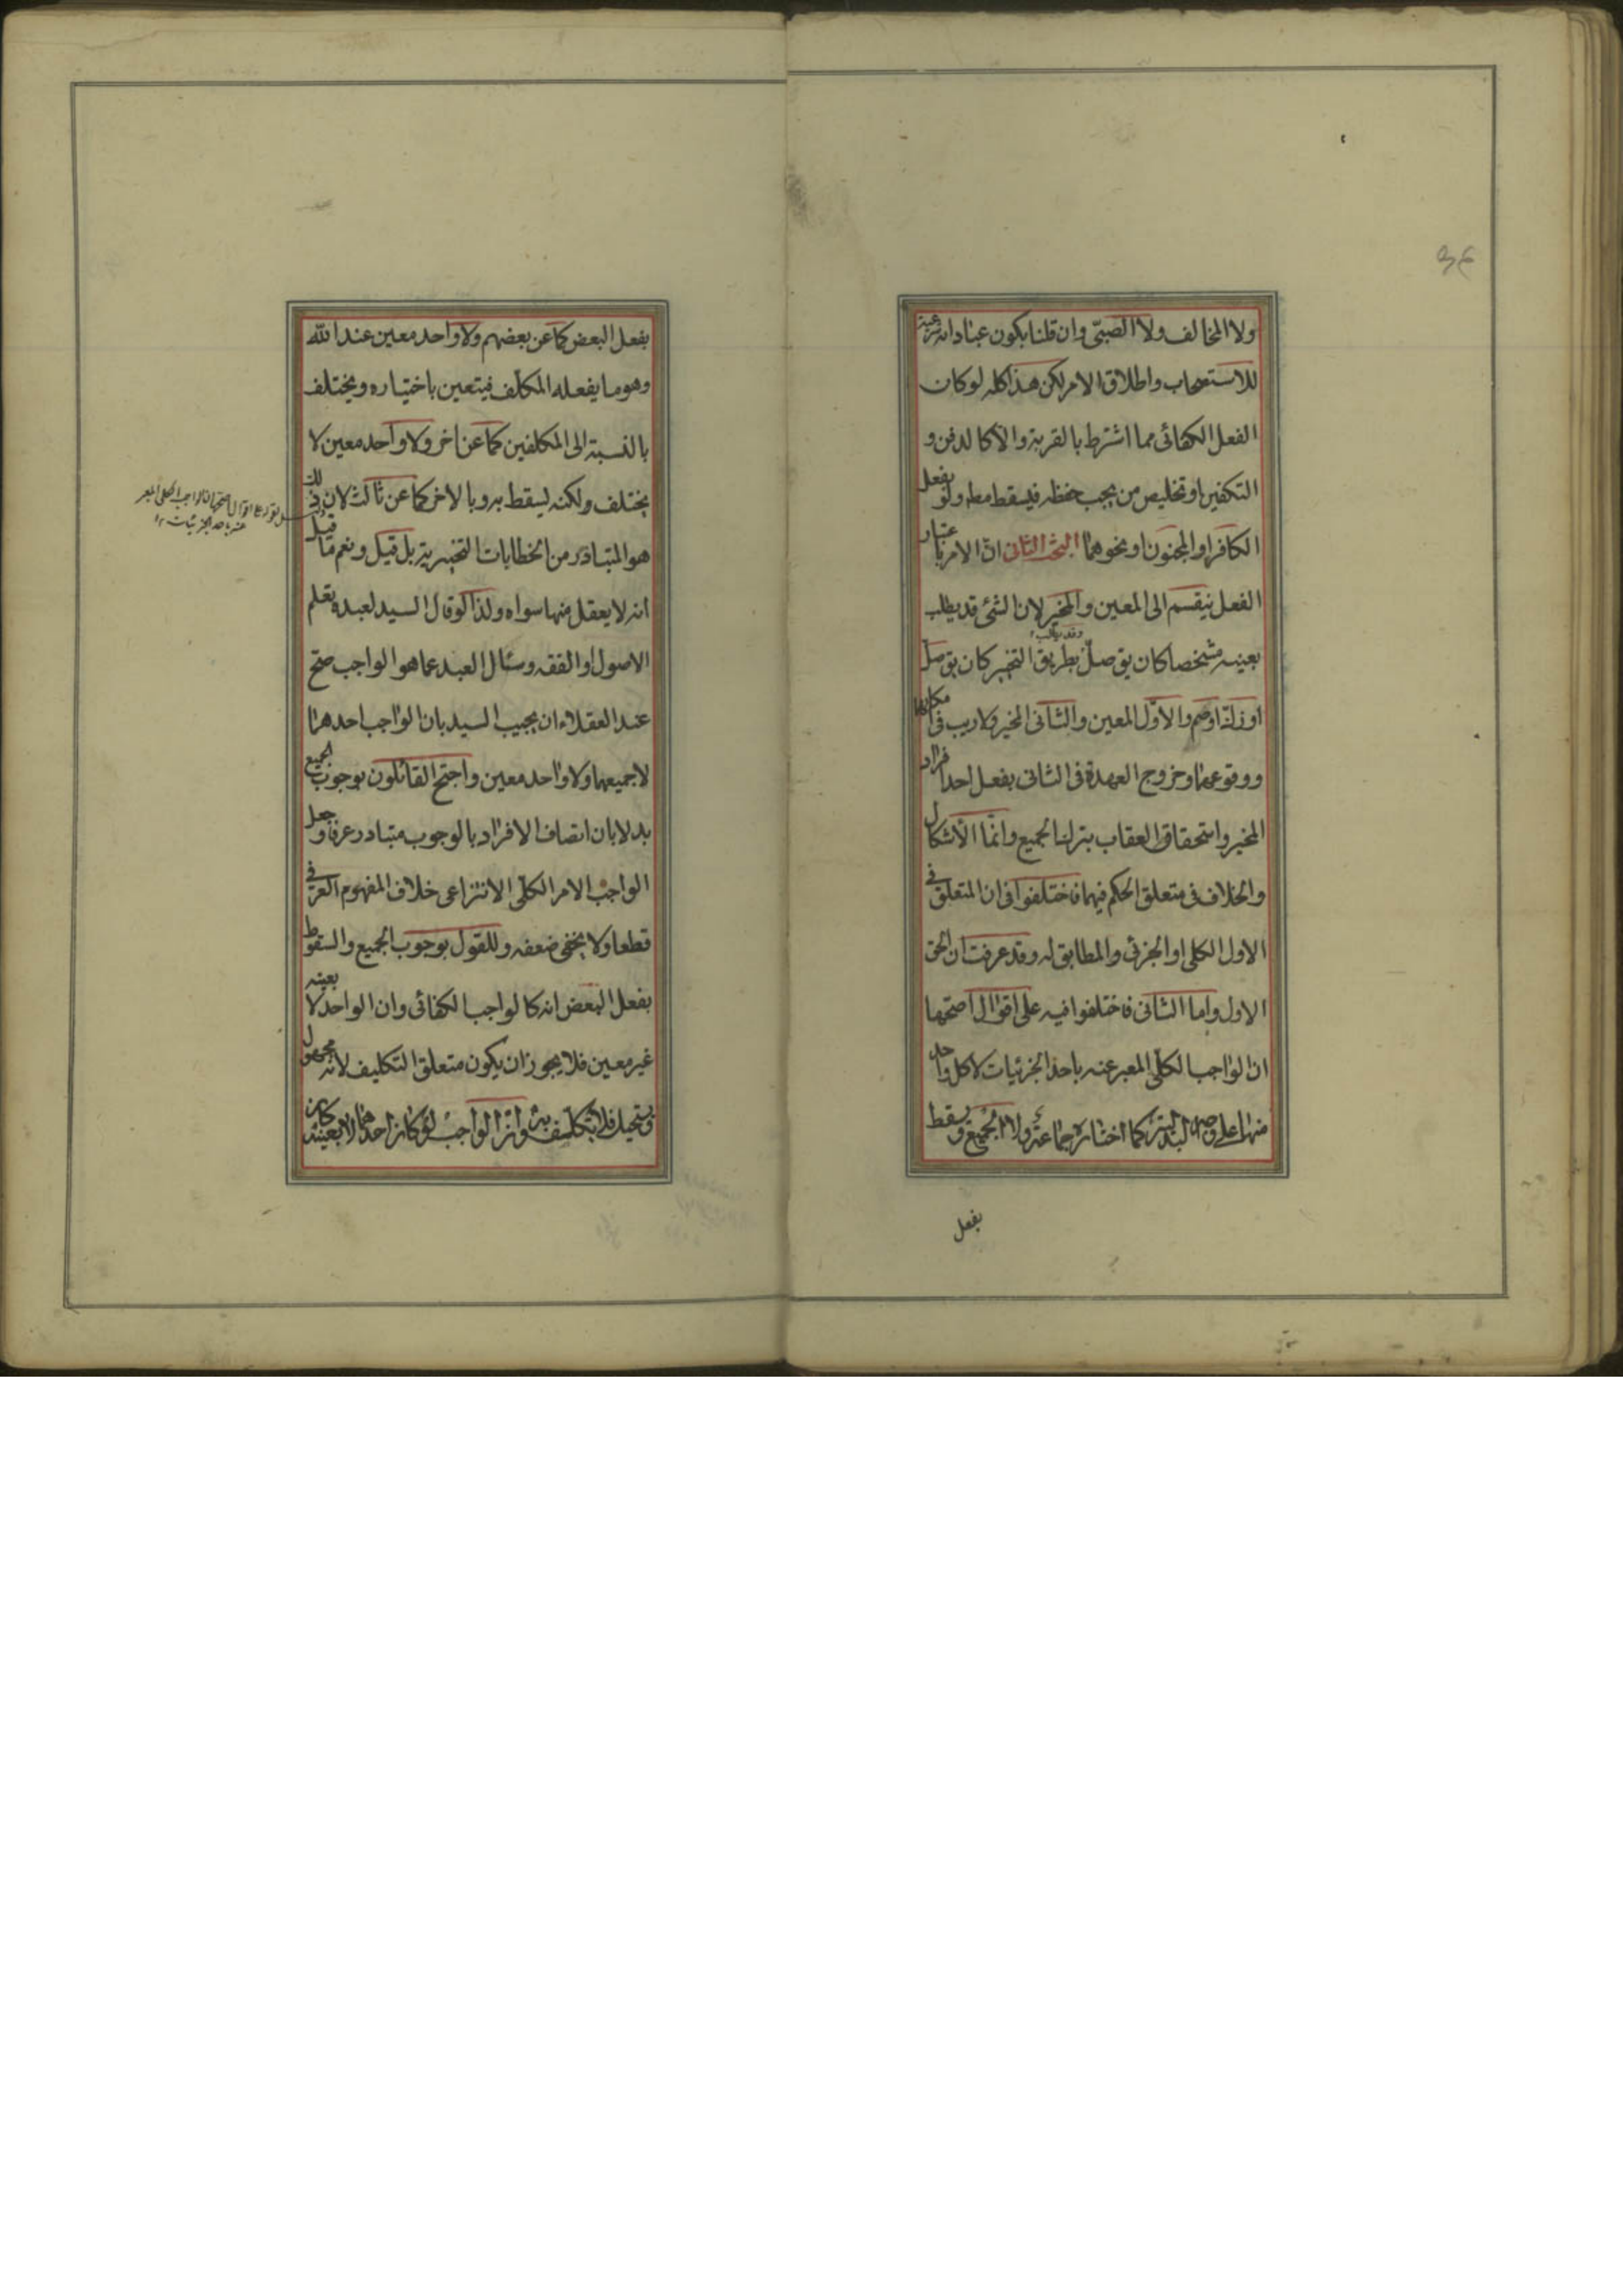 ولا المخالف ولا الصبيّ وان قلنا بكون عباداته شرعية
للاستصحاب واطلاق الامر لكن هذا كله لو كان
الفعل الكفائى مما اشترط بالقربة والا كالدفن و
التكفين او تخليص من يجب حفظه فيسقط مطر ولو بفعل
الكافر او المجنون او نحوهما البحث الثانى انّ الامر باعتبار
الفعل ينقسم الى المعين والمخير لان الشئ قد يطلب
بعينه مشخصا كان يق صلّ وقد يطلب بطريق التخيير كان يق صلّ
او زكّ او صم والاوّل المعين والثانى المخير ولا ريب فى امكانها
ووقوعهما وخروج العهدة فى الثانى بفعل احد افراد
المخير واستحقاق العقاب بترك الجميع وانّما الأشكال
والخلاف فى متعلق الحكم فيهما فاختلفوا فى ان المتعلق فى
الاول الكلى او الجزئى والمطابق له وقد عرفت ان الحق
الاول واما الثانى فاختلفوا فيه على اقوال اصحّها
ان الواجب الكلّى المعبر عنه باحد الجزئيات لا كل واحد
منها على وجه البدلية كما اختاره جماعة ولا الجميع ويسقط
بفعل
بفعل البعض كما عن بعضهم ولا واحد معين عند الله
وهو ما يفعله المكلف فيتعين باختياره ويختلف
بالنسبة الى المكلفين كما عن اخر ولا واحد معين لا
يختلف ولكنه يسقط به وبالاخر كما عن ثالث لان ذلك
هو المتبادر من الخطابات التخييرية بل قيل ونعم ما قيل
انه لا يعقل منها سواه ولذا لو قال السيد لعبده تعلم
الاصول او الفقه وسئال العبد عما هو الواجب صحّ
عند العقلاء ان يجيب السيد بان الواجب احدهما
لا جميعهما ولا واحد معين واحتج القائلون بوجوب الجميع
بدلا بان اتصاف الافراد بالوجوب متبادر عرفا وجعل
الواجب الامر الكلّى الانتزاعى خلاف المفهوم العرفى
قطعا ولا يخفى ضعفه وللقول بوجوب الجميع والسقوط
بفعل البعض انه كالواجب الكفائى وان الواحد لا بعينه
غير معين فلا يجوز ان يكون متعلق التكليف لانه مجهول
ويستحيل فلا يتكلف به وان الواجب لو كان احدهما لا بعينه
على اقوال اصحها ان الواجب الكلى المعبر
عنه باحد الجزئيات